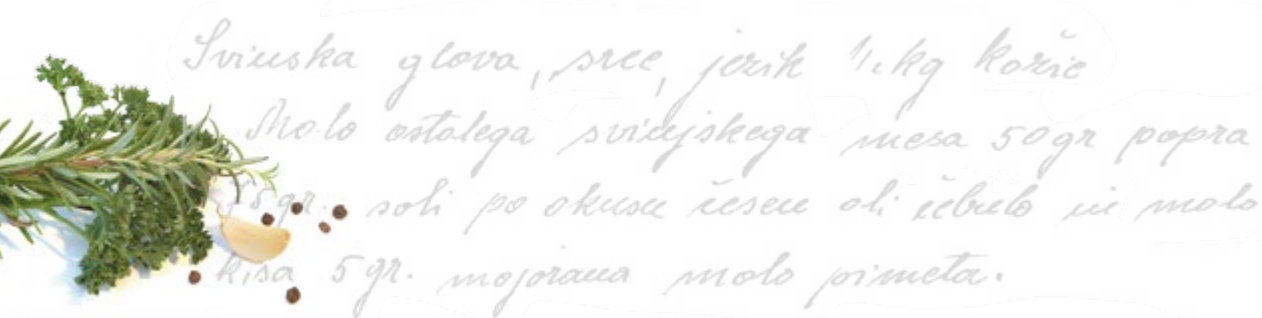 Svinska glova, srce, jezik 1/2 kg kožic
Malo ostalega svinjskega mesa 50gr popra
5 gr. soli po okusu česen ali čebulo in malo
kisa 5 gr. majorana malo pimeta.